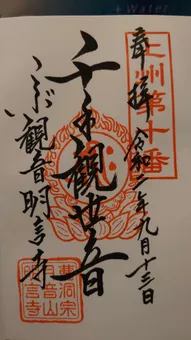 +Water
奉拝
上州第十番
令和二年九月十三日
千手観世音
こぶ観音明言寺
曹洞宗
明言寺